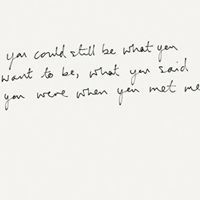 you could still be what you
want to be, what you said
you were when you met me